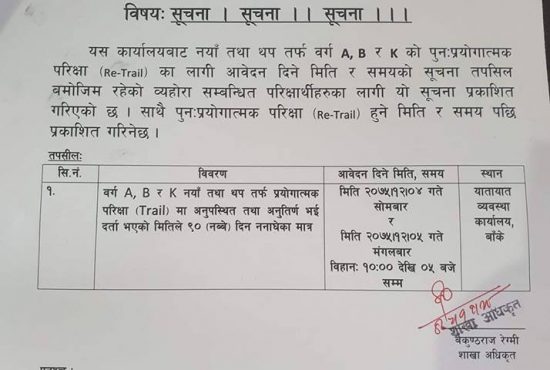 विषयः सूचना । सूचना ।। सूचना ।।।
यस कार्यालयबाट नयाँ तथा थप तर्फ वर्ग A, B र K को पुनःप्रयोगात्मक
परिक्षा (Re-Trail) का लागी आवेदन दिने मिति र समयको सूचना तपसिल
बमोजिम रहेको व्यहोरा सम्बन्धित परिक्षार्थीहरुका लागी यो सूचना प्रकाशित
गरिएको छ । साथै पुनःप्रयोगात्मक परिक्षा (Re-Trail) हुने मिति र समय पछि
प्रकाशित गरिनेछ ।
तपसीलः
सि.नं. विवरण आवेदन दिने मिति, समय स्थान
१. वर्ग A, B र K नयाँ तथा थप तर्फ प्रयोगात्मक मिति २०७५।१२।०४ गते यातायात
परिक्षा (Trail) मा अनुपस्थित तथा अनुतिर्ण भई सोमबार व्यवस्था
दर्ता भएको मितिले ९० (नब्बे) दिन ननाघेका मात्र र कार्यालय,
मिति २०७५।१२।०५ गते बाँके
मंगलबार
बिहानः १०:०० देखि ०५ बजे
सम्म
शाखा अधिकृत
बैकुण्ठराज रेग्मी
शाखा अधिकृत